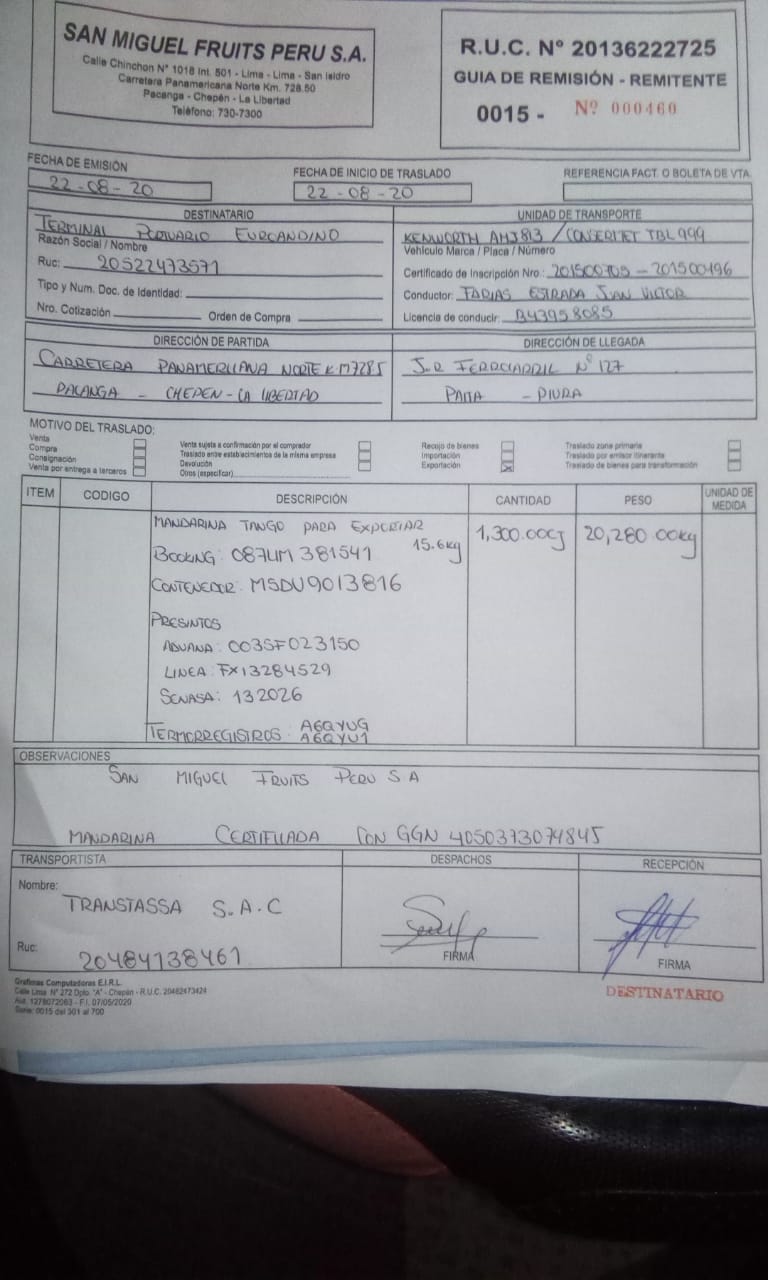 SAN MIGUEL FRUITS PERU S.A.
Calle Chinchon N° 1018 Int. 501 - Lima - Lima - San Isidro
Carretera Panamericana Norte Km. 728.50
Pacanga - Chepén - La Libertad
Teléfono: 730-7300
R.U.C. N° 20136222725
GUIA DE REMISIÓN - REMITENTE
0015 - Nº 000460
FECHA DE EMISIÓN
22-08-20
FECHA DE INICIO DE TRASLADO
22-08-20
REFERENCIA FACT. O BOLETA DE VTA.
DESTINATARIO
TERMINAL PORTUARIO EUROANDINO
Razón Social / Nombre
Ruc: 20522473571
Tipo y Num. Doc. de Identidad:
Nro. Cotización Orden de Compra
UNIDAD DE TRANSPORTE
KENWORTH AMJ813 / TBL999
Vehículo Marca / Placa / Número
Certificado de Inscripción Nro.: 201500705 - 201500196
Conductor: FARIAS ESTRADA JUAN VICTOR
Licencia de conducir: B43958085
DIRECCIÓN DE PARTIDA
CARRETERA PANAMERICANA NORTE KM7285
PACANGA - CHEPEN - LA LIBERTAD
DIRECCIÓN DE LLEGADA
J.R FERROCARRIL N° 127
PAITA - PIURA
MOTIVO DEL TRASLADO:
Venta
Compra
Consignación
Venta por entrega a terceros
Venta sujeta a confirmación por el comprador
Traslado entre establecimientos de la misma empresa
Devolución
Otros (especificar)
Recojo de bienes
Importación
Exportación X
Traslado zona primaria
Traslado por emisor itinerante
Traslado de bienes para transformación
ITEM CODIGO DESCRIPCIÓN CANTIDAD PESO UNIDAD DE MEDIDA
MANDARINA TANGO PARA EXPORTAR 1,300.00CJ 20,280.00kg
BOOKING: 087LIM381541 15.6kg
CONTENEDOR: MSDU9013816
PRESINTOS
ADUANA: 003SF023150
LINEA: FX13284529
SENASA: 132026
TERMORREGISTROS: A6QYUG
A6QYU1
OBSERVACIONES
SAN MIGUEL FRUITS PERU S A
MANDARINA CERTIFICADA CON GGN 4050373074845
TRANSPORTISTA
Nombre:
TRANSTASSA S.A.C
Ruc: 20484138461
DESPACHOS
FIRMA
RECEPCIÓN
FIRMA
Grafimas Computadoras E.I.R.L.
Calle Lima N° 272 Dpto. "A" - Chepén - R.U.C. 20482473424
Aut. 1278072063 - F.I. 07/05/2020
Serie: 0015 del 301 al 700
DESTINATARIO